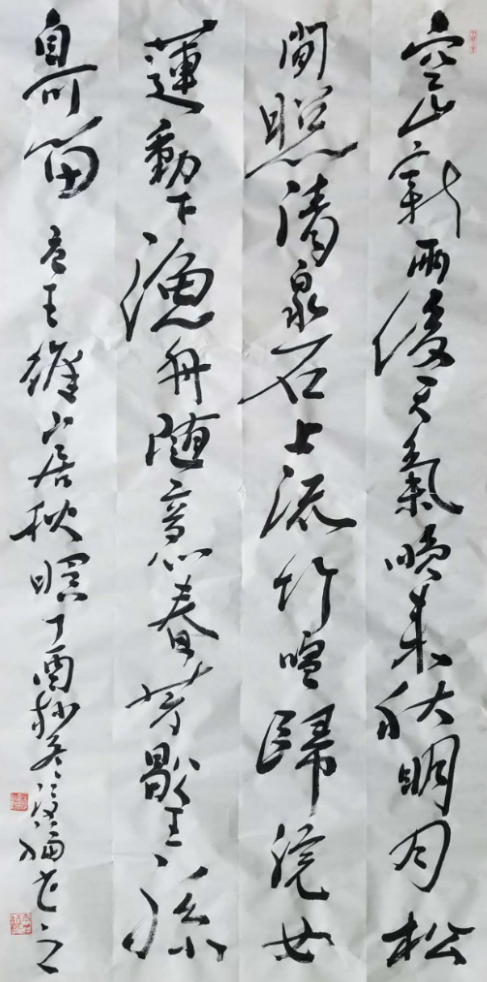 空山新雨後天氣晚来秋明月松
間照清泉石上流竹喧歸浣女
蓮動下漁舟随意春芳歇王孫
自可留 王維山居秋暝丁酉杪冬